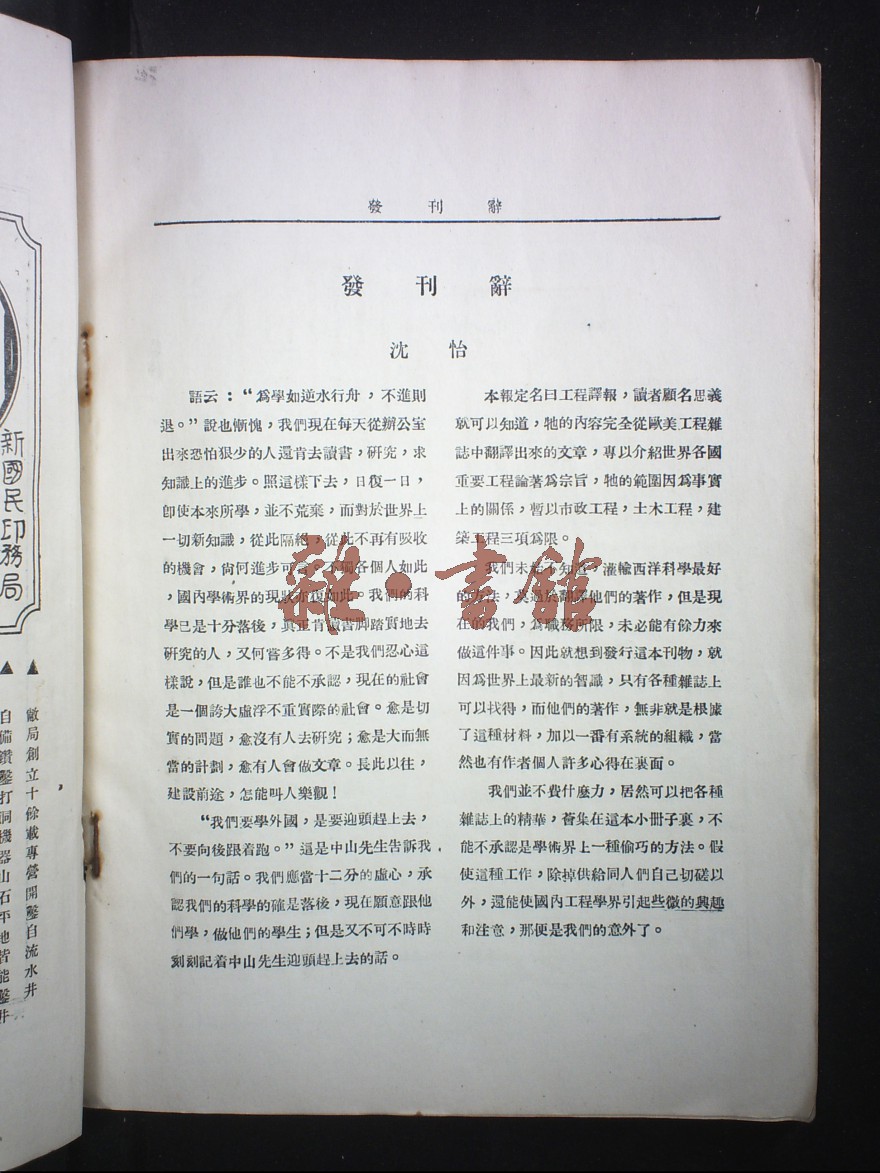 發 刊 辭
發 刊 辭
沈 怡
語云：“爲學如逆水行舟，不進則
退。”說也慚愧，我們現在每天從辦公室
出來恐怕狠少的人還肯去讀書，研究，求
知識上的進步。照這樣下去，日復一日，
卽使本來所學，並不荒棄，而對於世界上
一切新知識，從此隔絕，從此不再有吸收
的機會，尙何進步可言。不獨各個人如此
，國內學術界的現狀亦復如此。我們的科
學已是十分落後，眞正肯讀書脚踏實地去
研究的人，又何嘗多得。不是我們忍心這
樣說，但是誰也不能不承認，現在的社會
是一個誇大虛浮不重實際的社會。愈是切
實的問題，愈沒有人去研究；愈是大而無
當的計劃，愈有人會做文章。長此以往，
建設前途，怎能叫人樂觀！
“我們要學外國，是要迎頭趕上去，
不要向後跟着跑。”這是中山先生告訴我
們的一句話。我們應當十二分的虛心，承
認我們的科學的確是落後，現在願意跟他
們學，做他們的學生；但是又不可不時時
刻刻記着中山先生迎頭趕上去的話。
本報定名曰工程譯報，讀者顧名思義
就可以知道，牠的內容完全從歐美工程雜
誌中翻譯出來的文章，專以介紹世界各國
重要工程論著爲宗旨，牠的範圍因爲事實
上的關係，暫以市政工程，土木工程，建
築工程三項爲限。
我們未始不知道，灌輸西洋科學最好
的方法，莫過於翻譯他們的著作，但是現
在的我們，爲職務所限，未必能有餘力來
做這件事。因此就想到發行這本刊物，就
因爲世界上最新的智識，只有各種雜誌上
可以找得，而他們的著作，無非就是根據
了這種材料，加以一番有系統的組織，當
然也有作者個人許多心得在裏面。
我們並不費什麼力，居然可以把各種
雜誌上的精華，薈集在這本小冊子裏，不
能不承認是學術界上一種偷巧的方法。假
使這種工作，除掉供給同人們自己切磋以
外，還能使國內工程學界引起些微的興趣
和注意，那便是我們的意外了。
雜·書館
新國民印務局
▲敝局創立十餘載專營開鑿自流水井
▲自備鑽鑿打洞機器山石平地皆能鑿井